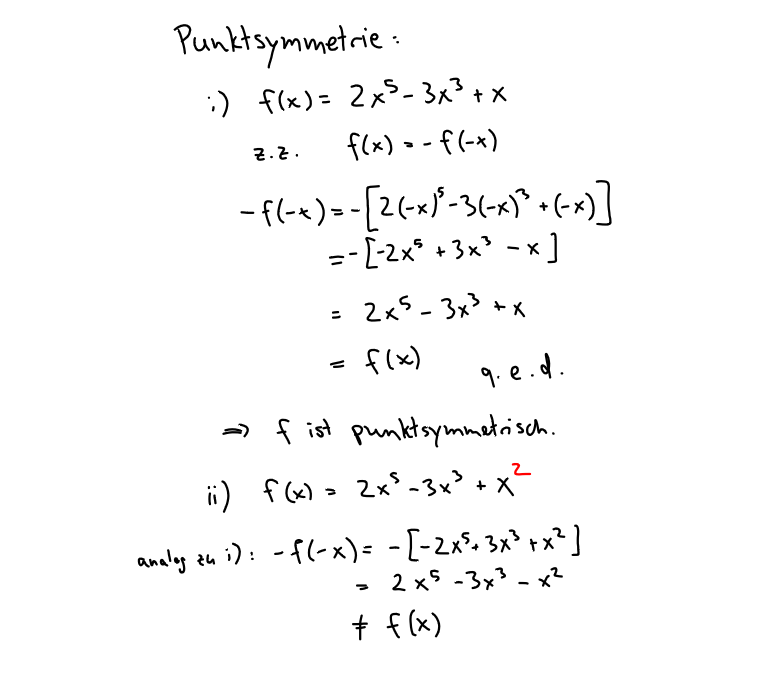 Punktsymmetrie:
i) f(x) = 2x⁵ - 3x³ + x
z.z. f(x) = - f(-x)
-f(-x) = -[2(-x)⁵ - 3(-x)³ + (-x)]
= -[-2x⁵ + 3x³ - x]
= 2x⁵ - 3x³ + x
= f(x) q.e.d.
⇒ f ist punktsymmetrisch.
ii) f(x) = 2x⁵ - 3x³ + x²
analog zu i): -f(-x) = -[-2x⁵ + 3x³ + x²]
= 2x⁵ - 3x³ - x²
≠ f(x)